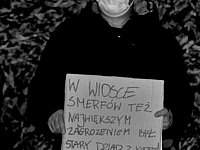 W WIOSCE
SMERFÓW TEŻ
NAJWIĘKSZYM
ZAGROŻENIEM BYŁ
STARY DZIAD Z KOTEM